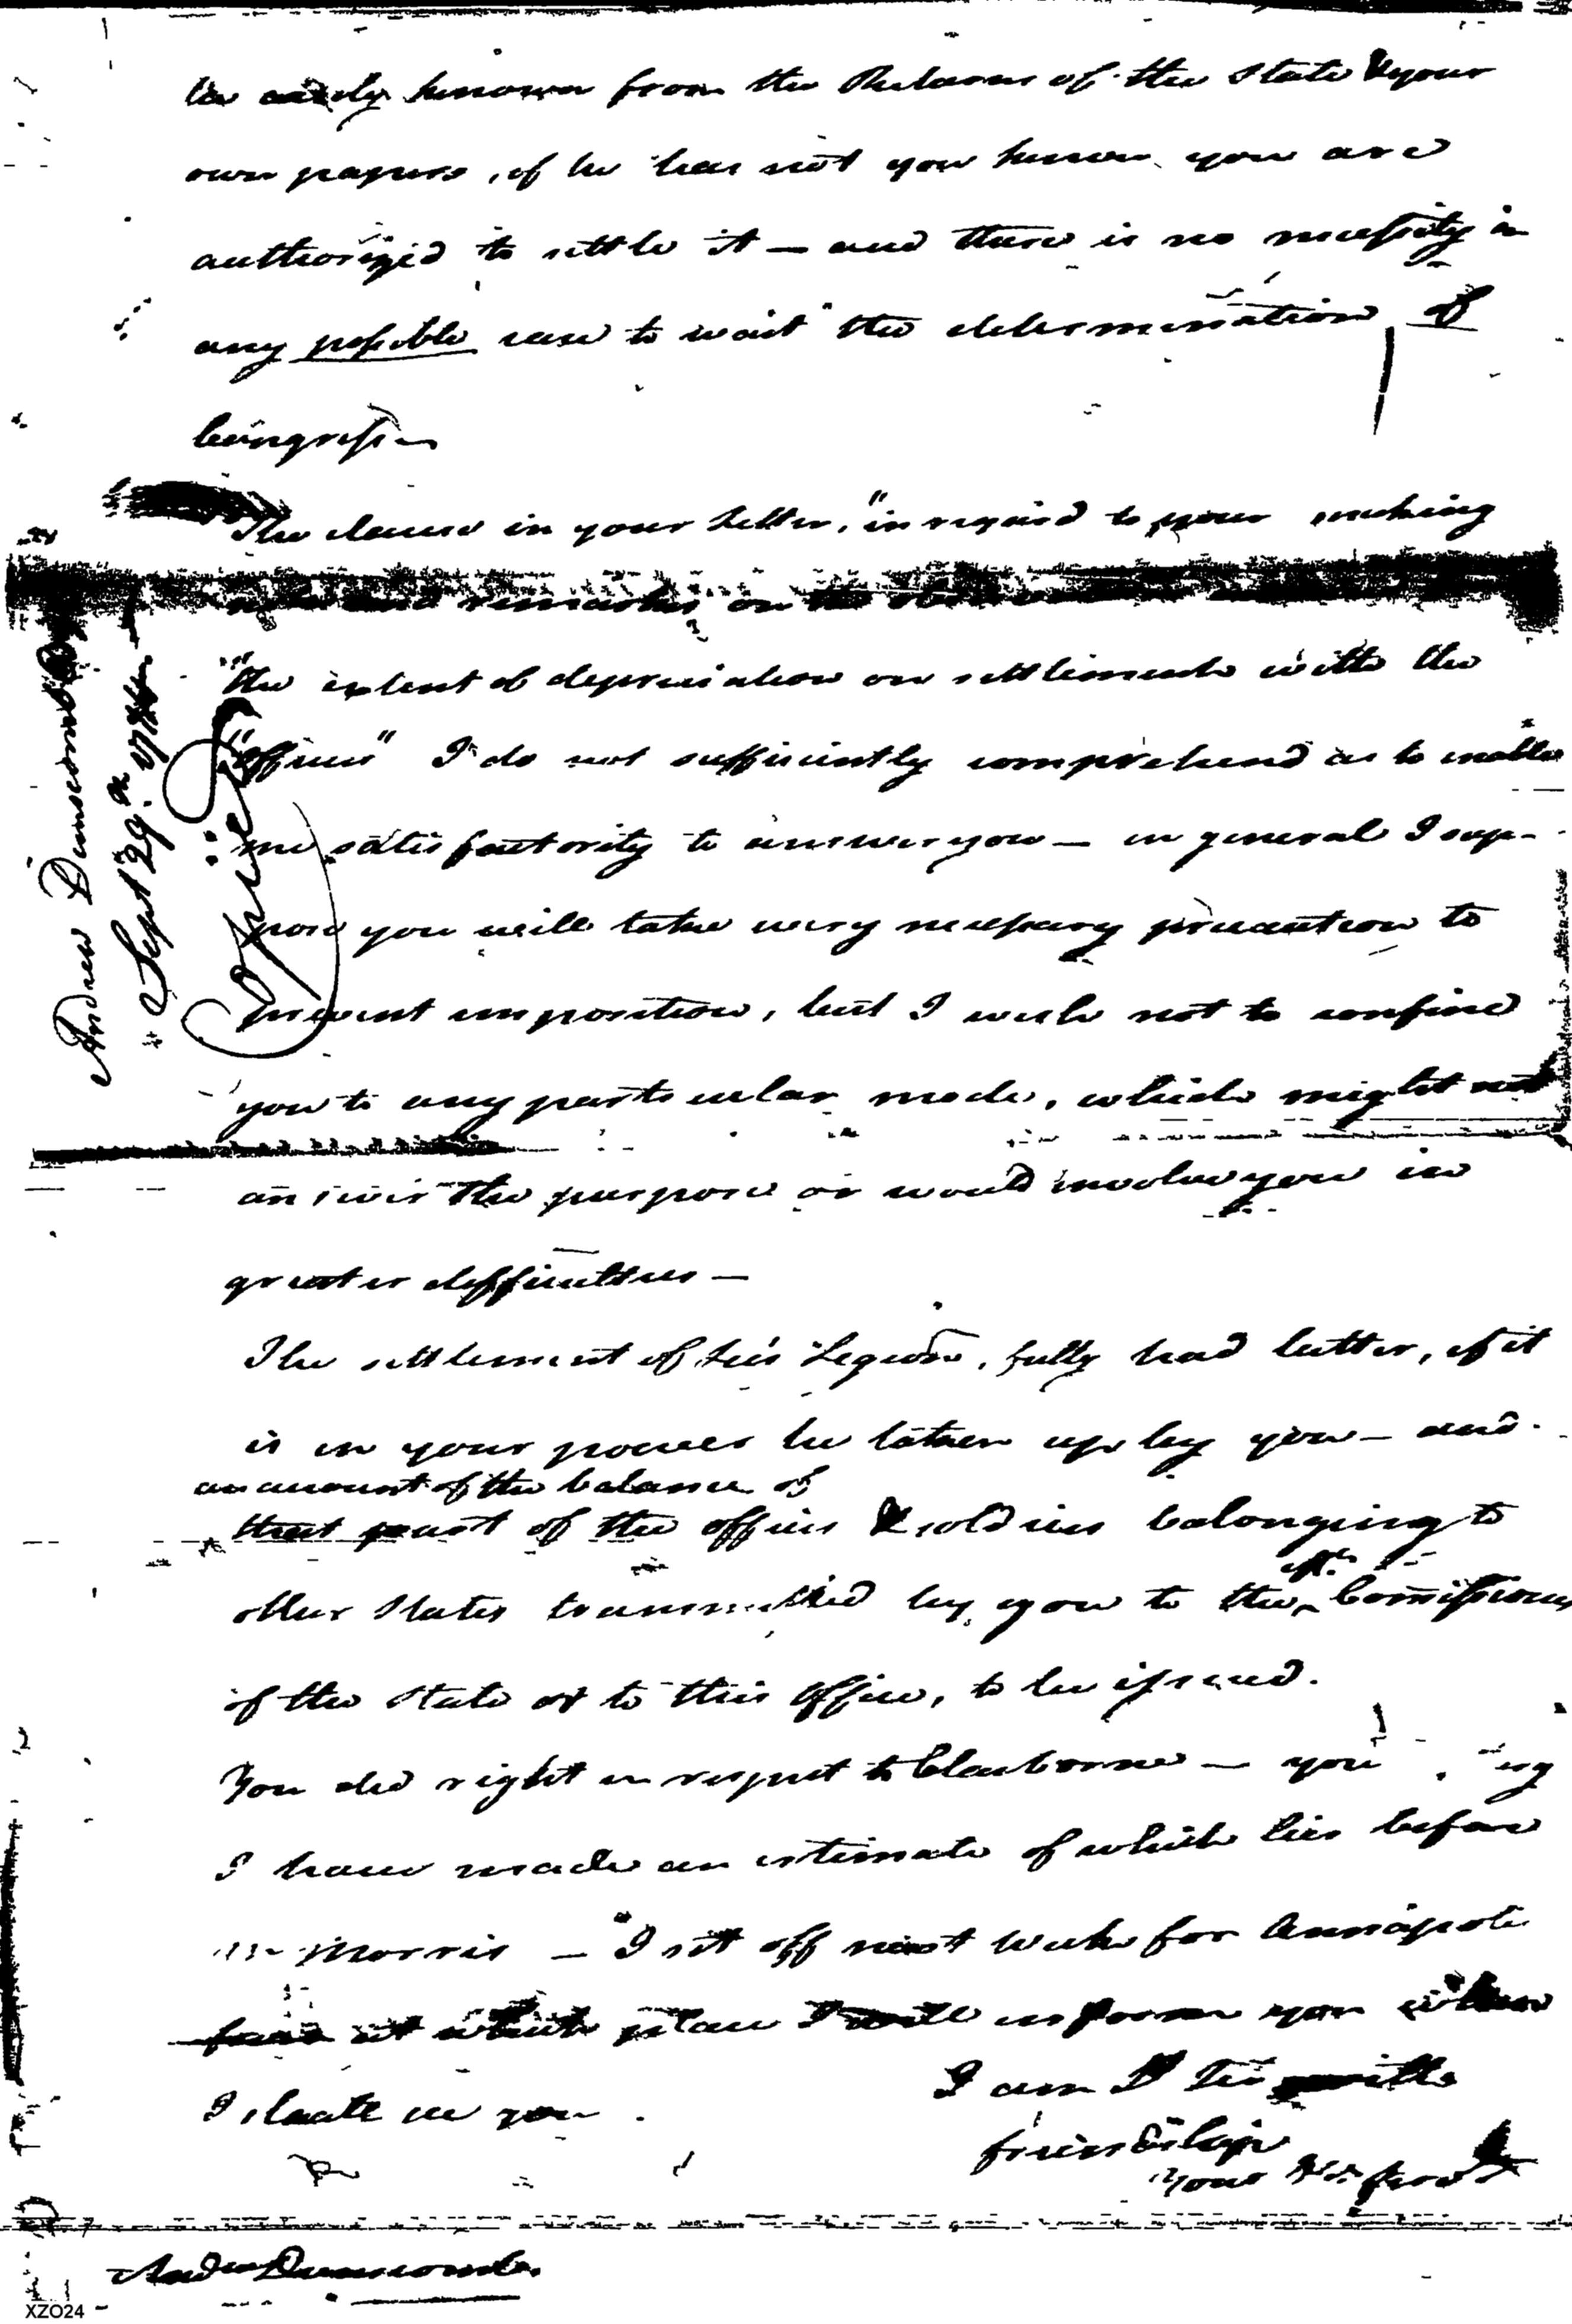 be easily known from the Returns of the State & your
own papers, if he has not you know you are
authorized to settle it — and there is no necessity in
any possible case to wait the determination of
Congress —
The clause in your Letter, "in regard to your making
notes and remarks on the
"the extent of depreciation on settlements with the
"officers" I do not sufficiently comprehend as to enable
me satisfactorily to answer you — in general I sup-
pose you will take every necessary precaution to
prevent imposition, but I wish not to confine
you to any particular mode, which might not
answer the purpose or would involve you in
greater difficulties —
The settlement of Lee's Legion, fully had better, if it
is in your power be taken up by you — and
an account of the balance of
that part of the officers & soldiers belonging to
other States transmitted by you to the Comissioner
of the State or to this Office, to be issued.
You did right in respect to Claiborne — your
I have made an estimate of which lies before
Mr Morris — I set off next Week for Annapolis
from at which place I will inform you when
I shall see you.
I am Dr Sir with
friendship
Your
Andw Dunscomb.
Andrew Dunscomb
Sept 29th
Copied
XZO24